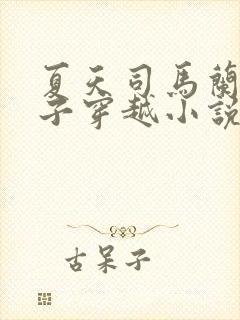 夏天司馬蘭
子穿越小說
古呆子